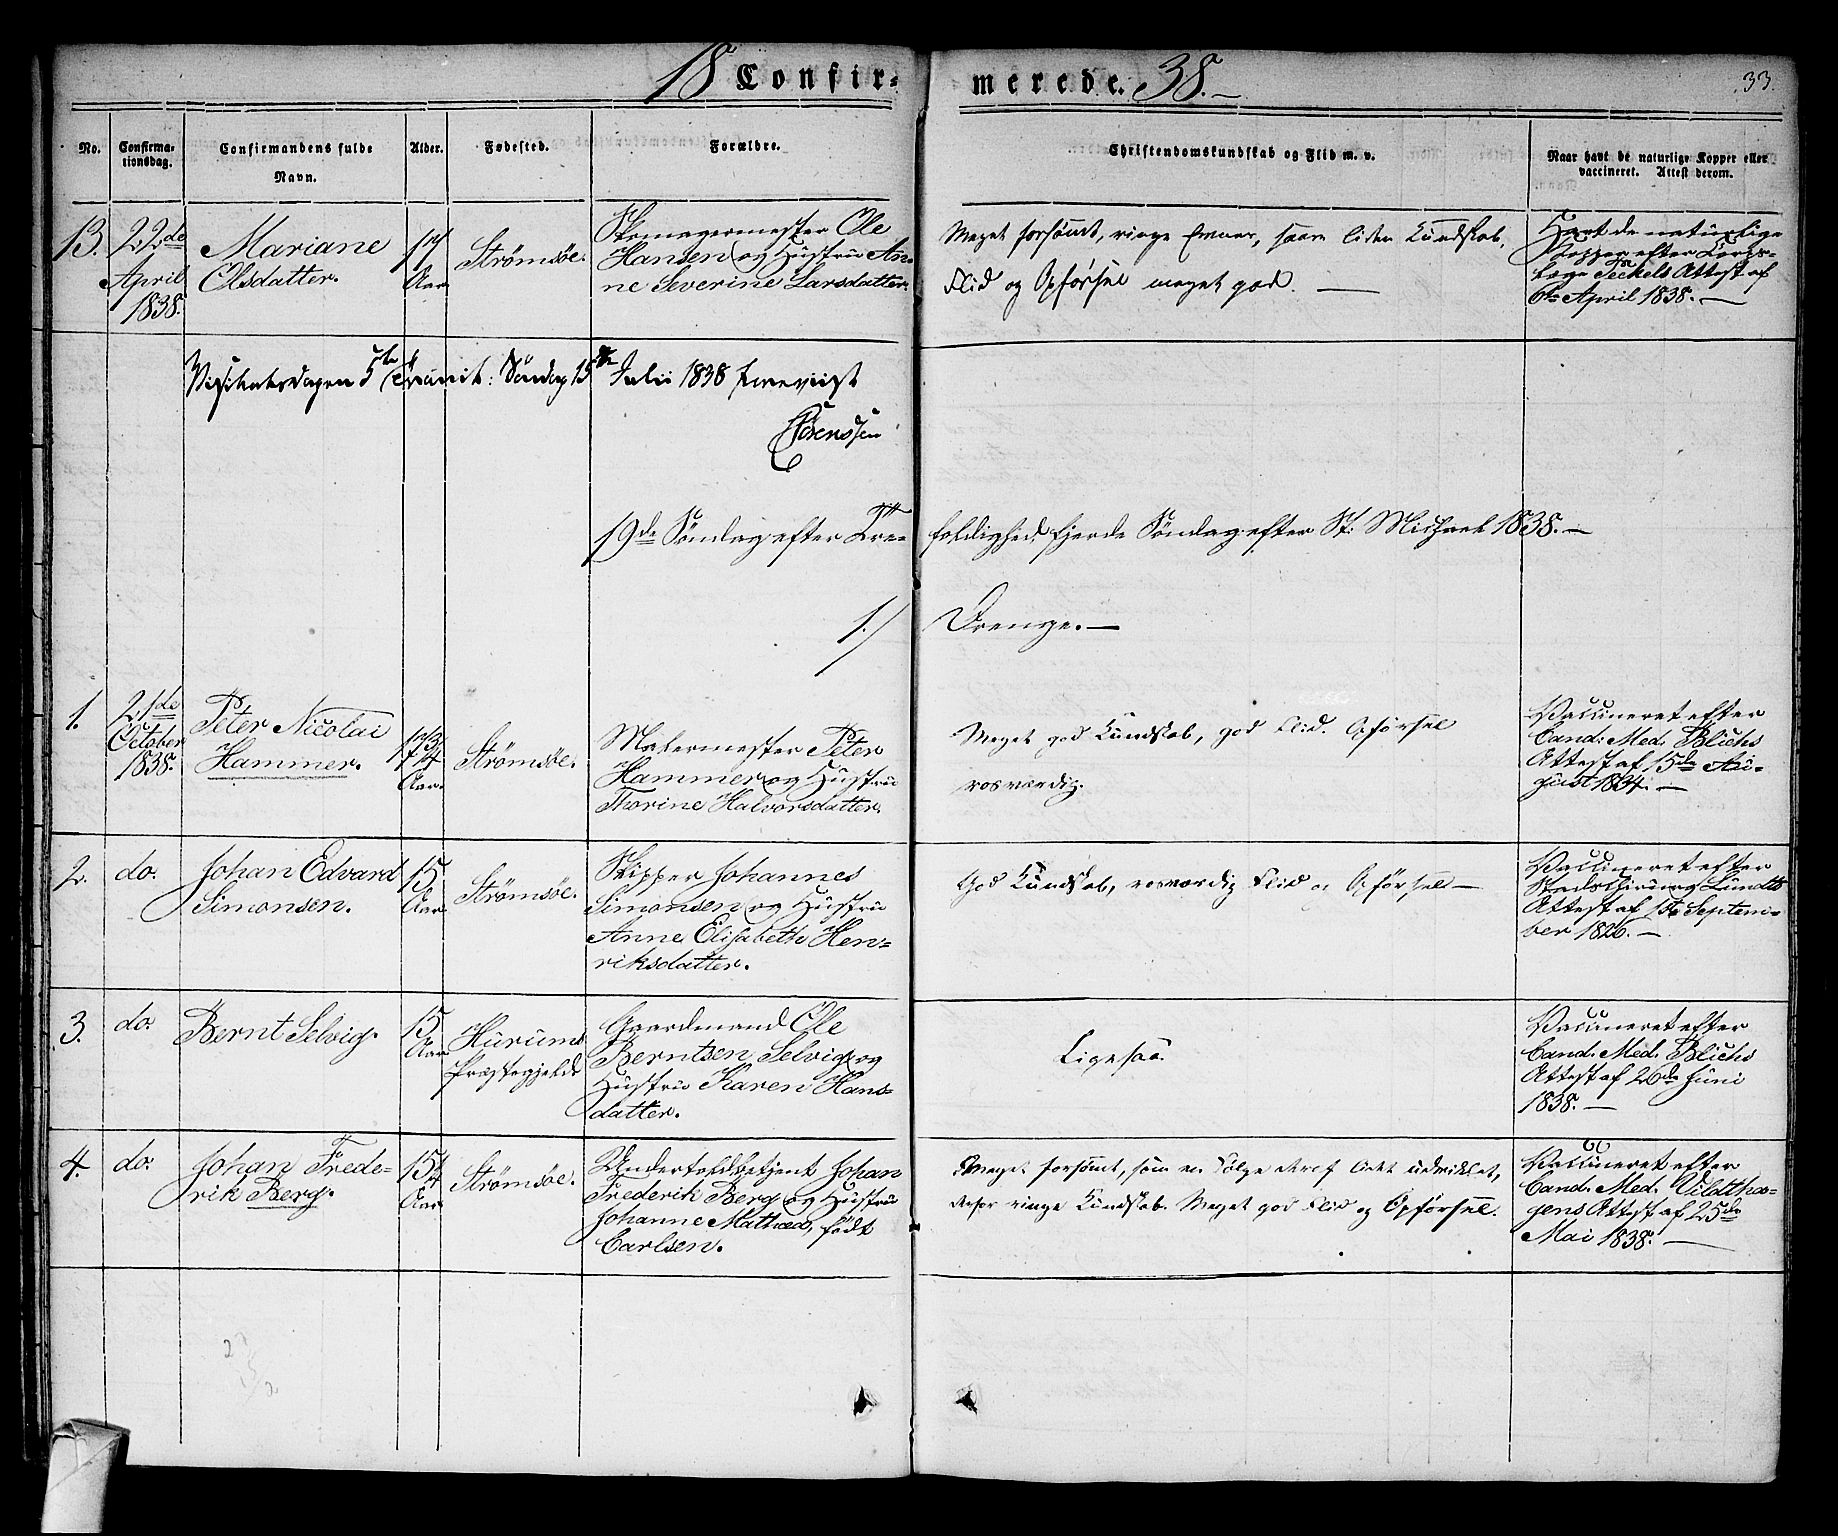 18 Confir- merede. 38.
33.
No.
Confirma-
tionsdag.
Confirmandens fulde
Navn.
Alder.
Fødested.
Forældre.
Christendomskundskab og Flid m. v.
Naar havt de naturlige Kopper eller
vaccineret. Attest derom.
13.
22de
April
1838.
Mariane
Olsdatter.
17
Aar
Strömsöe.
Skomagermester Ole
Hansen og Hustru An-
ne Severine Larsdatter.
Meget forsömt, ringe Evner, saare liden Kundskab,
Flid og Opförsel meget god. —
Havt de naturlige
Kopper efter
Attest af
6te April 1838. —
Visitatsdagen 5te Trinit: Söndag 15de Julii 1838 foreviist
Sörenssen
19de Söndag efter Tre- foldighed, fjerde Söndag efter St: Michael 1838. —
1./ Drenge. —
1.
21de
October
1838.
Peter Nicolai
Hammer.
17 3/4
Aar.
Strömsöe.
Malermester Peter
Hammer og Hustru
Thorine Halvorsdatter.
Meget god Kundskab, god Flid. Opförsel
rosværdig.
Vaccineret efter
Cand: Med: Blichs
Attest af 15de Au-
gust 1834. —
2.
do.
Johan Edvard
Simonsen.
15
Aar.
Strömsöe.
Skipper Johannes
Simonsen og Hustru
Anne Elisabeth Hen-
riksdatter.
God Kundskab, rosværdig Flid og Opförsel —
Vaccineret efter
Stadschirurg Lundts
Attest af 1ste Septem-
ber 1826. —
3.
do.
Bernt Selvig.
15
Aar
Hurums
Præstegjeld
Gaardmand Ole
Berntsen Selvig og
Hustru Karen Hans-
datter.
Ligesaa.
Vaccineret efter
Cand: Med: Blichs
Attest af 26de Juni
1838. —
4.
do.
Johan Frede-
rik Berg.
15 1/4
Aar
Strömsöe.
Undertoldbetjent Johan
Frederik Berg og Hustru
Johanne Mathea, född
Carlsen.
Meget forsömt, som en Fölge deraf lidet udviklet,
derfor ringe Kundskab. Meget god Flid og Opförsel.
Vaccineret efter
Cand: Med: Vildtha-
gens Attest af 25de
Mai 1838. —